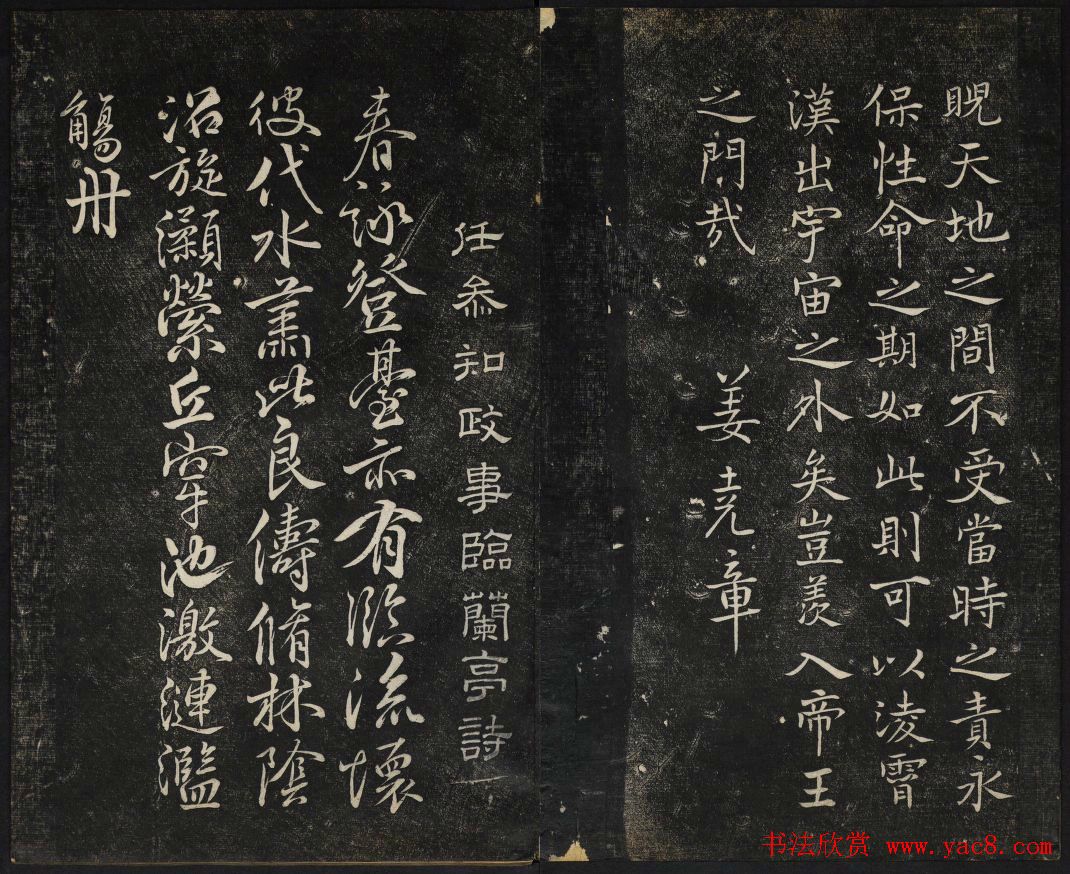 睨天地之間不受當時之責永
保性命之期如此則可以淩霄
漢出宇宙之外矣豈羨入帝王
之門哉 姜堯章
任叅知政事臨蘭亭詩
春詠登臺亦有臨流懷
彼伐木肅此良儔脩林陰
沼旋瀨縈丘穿池激連濫
觴舟
书法欣赏 www.yac8.com